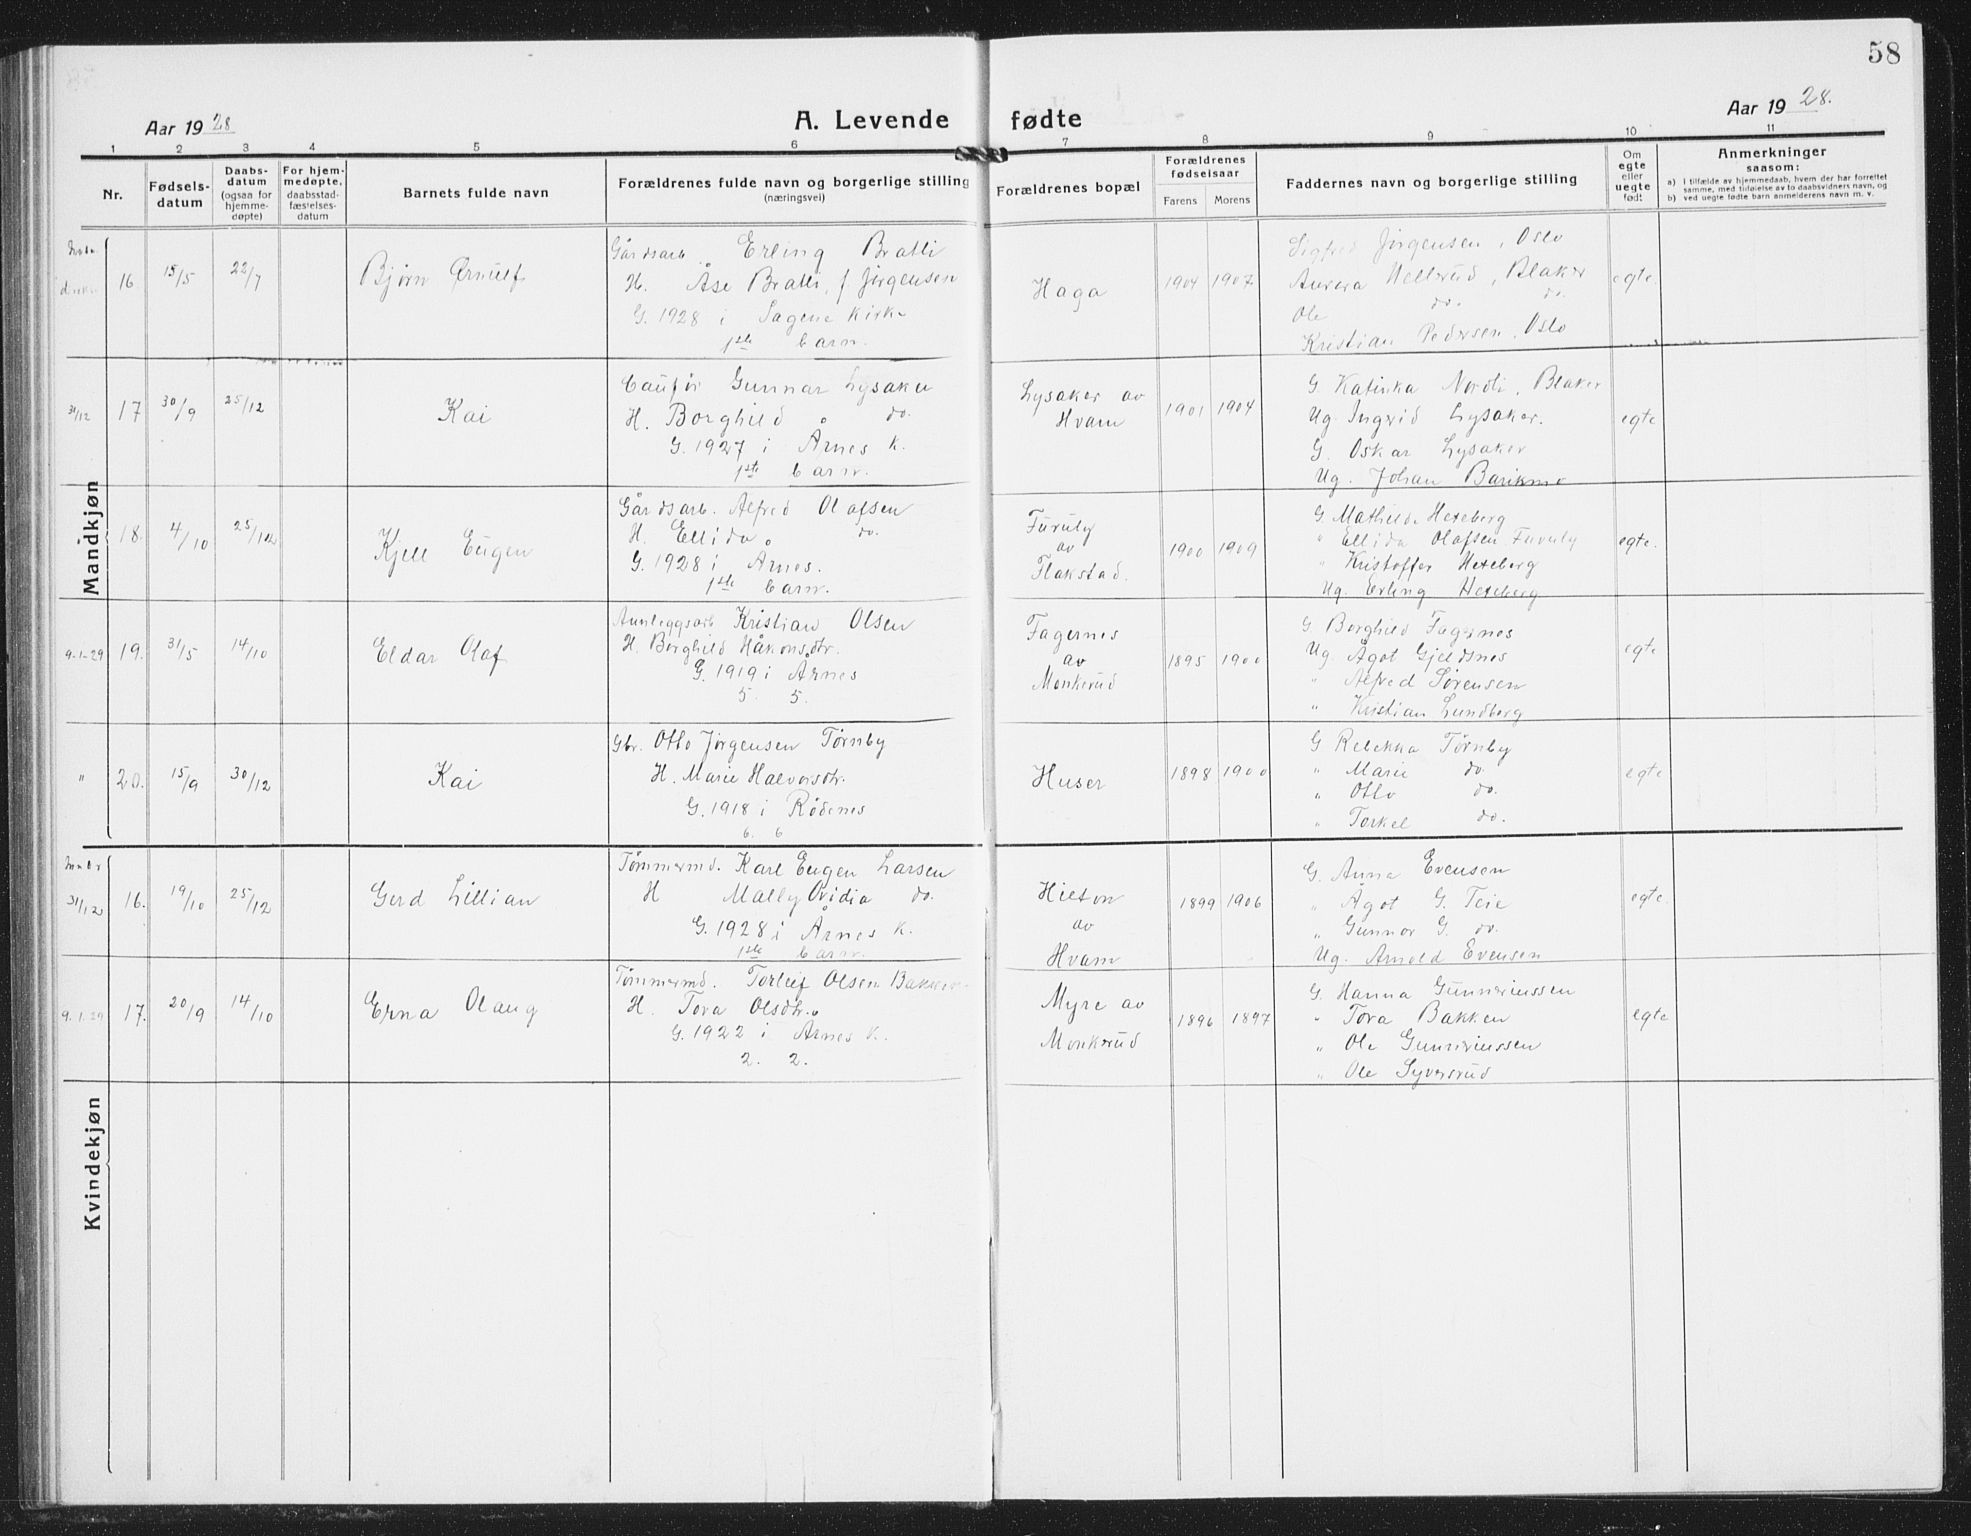 58
Aar 1928
A. Levende fødte
Aar 1928.
1 2 3 4 5 6 7 8 9 10 11
Nr.
Fødselsdatum
Daabsdatum (ogsaa for hjemmedøpte)
For hjemmedøpte, daabsstadfæstelsesdatum
Barnets fulde navn
Forældrenes fulde navn og borgerlige stilling
(næringsvei)
Forældrenes bopæl
Forældrenes fødselsaar
Farens Morens
Faddernes navn og borgerlige stilling
Om egte eller uegte født
Anmerkninger
saasom:
a) I tilfælde av hjemmedaab, hvem der har forrettet samme, med tilføielse av to daabsvidners navn, og
b) ved uegte fødte barn anmelderens navn m. v.
Mandkjøn
16 15/5 22/7 Bjørn Ørnulf
Gårdsarb. Erling Bratli
H. Åse Bratli, f. Jørgensen
G. 1928 i Sagene kirke
1ste barn.
Haga 1904 1907
Sigfred Jørgensen, Oslo
Aurora Hellerud, Blaker
Ole do. do.
Kristian Pedersen, Oslo
egte.
31/12 17 30/9 25/12 Kai
Gunnar Lysaker
H. Borghild do.
G. 1927 i Årnes K.
1ste barn.
Lysaker av
Hvam
1901 1904
G Katinka Nordli, Blaker
Ug. Ingrid Lysaker.
G. Oskar Lysaker
Ug. Johan Barikmo
egte
18. 4/10 25/12 Kjell Eugen
Gårdsarb. Alfred Olafsen
H. Ellida do.
G. 1928 i Årnes.
1ste barn.
Furuly
av
Flakstad.
1900 1909
G. Mathilde Hexeberg
" Ellida Olafsen Furuly
" Kristoffer Hexeberg
Ug. Erling Hexeberg
egte.
9-1-29 19. 31/5 14/10 Eldar Olaf
Anleggsarb Kristian Olsen
H. Borghild Håkonsdtr.
G. 1919 i Årnes
5. 5.
Fagernes
av
Monkerud
1895 1900
G. Borghild Fagernes
Ug. Ågot Gjeldsnes
" Alfred Sørensen
" Kristian Lundberg
egte
" 20. 15/9 30/12 Kai
Gbr. Otto Jørgensen Tørnby
H. Marie Halvorsdtr.
G. 1918 i Rødenes
6. 6
Huser 1898 1900
G Rebekka Tørnby
" Marie do.
" Otto do.
" Torkel do.
egte
Kvindekjøn
31/12 16. 19/10 25/12 Gerd Lillian
Tømmermd. Karl Eugen Larsen
H Mally Ovidia do.
G. 1928 i Årnes K.
1ste barn.
av
Hvam
1899 1906
G. Anna Evensen
" Ågot G. Teie
" Gunnar G. do.
Ug. Arnold Evensen
egte.
9.1.29 17. 20/9 14/10 Erna Olaug
Tømmermd. Torleif Olsen Bakken
H. Tora Olsdtr.
G. 1922 i Årnes K.
2. 2.
Myre av
Monkerud
1896 1897
G. Hanna Gunneriussen
" Tora Bakken
" Ole Gunneriussen
" Ole Syversrud
egte